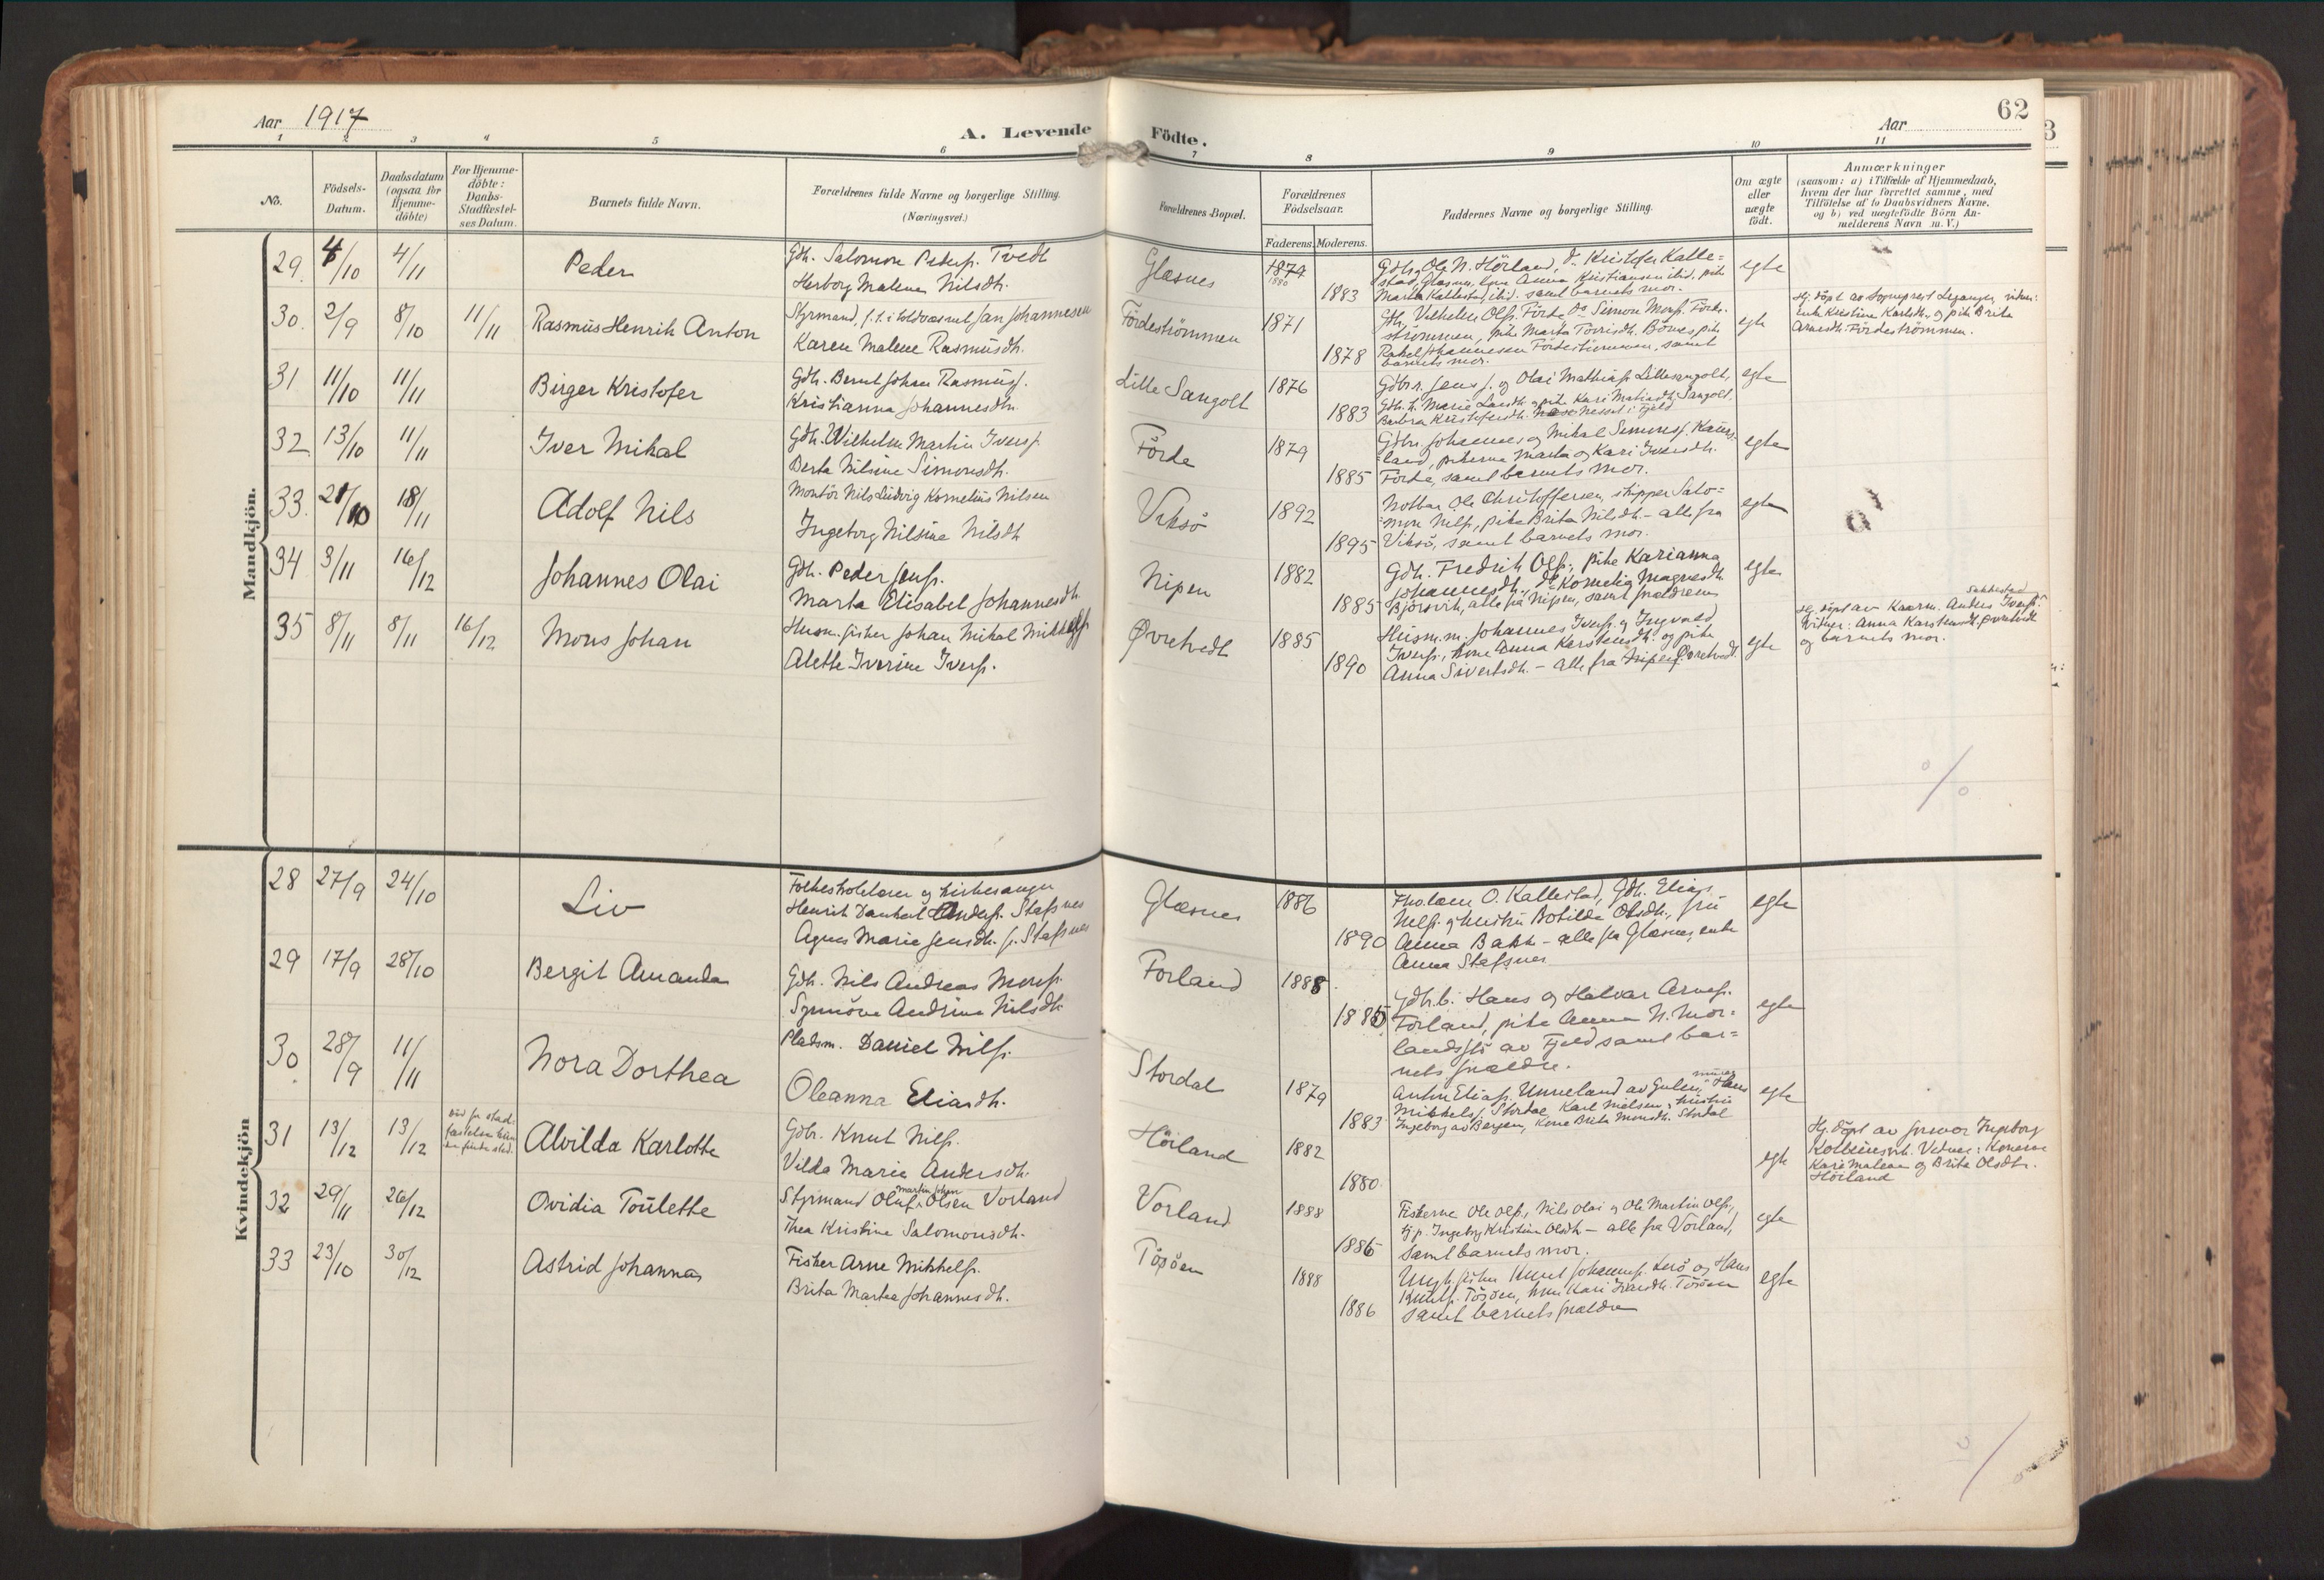 Aar 1917
A. Levende Födte.
Aar
62
1 2 3 4 5 6 7 8 9 10 11
No.
Födsels-Datum.
Daabsdatum (ogsaa for Hjemme-döbte)
For Hjemme-döbte: Daabs-Stadfæstel-ses Datum.
Barnets fulde Navn.
Forældrenes fulde Navne og borgerlige Stilling.
(Næringsvei.)
Forældrenes Bopæl.
Forældrenes Födselsaar.
Faderens. Moderens.
Faddernes Navne og borgerlige Stilling.
Om ægte eller uægte födt.
Anmærkninger
(saasom: a) i Tilfælde af Hjemmedaab,
hvem der har forrettet samme, med
Tilföielse af to Daabsvidners Navne,
og b) ved uægtefödte Börn An-
melderens Navn m. V.)
Mandkjön.
29. 4/10 4/11 Peder
Gdb. Salomon Peders. Tvedt
Herborg Malena Nilsdh.
Glæsnes 1874 1880 1883
Gdbr. Ole N. Hörland, do Kristofer Kalle=
stad, Glæsnes, kone Anna Kristiansen ibid, pike
Marta Kallestad, ibid. samt barnets mor.
egte
30. 2/9 8/10 11/11 Rasmus Henrik Anton
Styrmand, f. t. i toldvæsenet Jan Johannesen
Karen Malene Rasmusdh.
Fördeströmmen 1871 1878
Gb. Vilhelm Ols. Förde do Simon Mons. Förde-
strömmen, pike Marta Torrisdh. Bönes, pike
Rakel Johannesen Fördeströmmen, samt
barnets mor.
egte
Hj. döpt av Sogneprest Legangen, vidner:
enke Kristine Karlsdh. og pike Brita
Arnesdh. Fördeströmmen.
31 11/10 11/11 Birger Kristofer
Gdb. Bernt Johan Rasmuss.
Kristianna Johannesdh.
Lille Sangolt 1876 1883
Gdbr. Jens J. og Olai Mathias. Lillesangolt,
Gdb. h. Marie Larsdh. og pike Kari Matiasdh. Sangolt.
Barbra Kristofersdh. Nesset i Fjeld
egte
32 13/10 11/11 Iver Mikal
Gdb. Wilhelm Martin Ivers.
Berta Nilsine Simonsdh.
Förde 1879 1885
Gdbr. Johannes og Mikal Simons. Kaurs
land, pikerne Marta og Kari Iversdh.
Förde, samt barnets mor.
egte
33. 21/10 18/11 Adolf Nils
Montör Nils Ludvig Kornelius Nilsen
Ingeborg Nilsine Nilsdh
Viksö 1892 1895
Notbas Ole Christoffersen, skipper Salo=
mon Nils., pike Brita Nilsdh. - alle fra
Viksö, samt barnets mor.
egte
34 3/11 16/12 Johannes Olai
Gdb. Peder Jens.
Marta Elisabet Johannesdh.
Nipen 1882 1885
Gdb. Fredrik Ols., pike Karianna
Johannesdh., do Kornelia Magnesdh
Björsvik, alle på Nipen, samt forældrene
egte
35 8/11 8/11 16/12 Mons Johan
Husm. fisker Johan Mikal Mikkels.
Alette Iverine Ivers.
Övretvedt 1885 1890
Husm. m. Johannes Ivers. og Ingvald
Ivers., kone Anna Karstensdh. og pike
Anna Sivertsdh. - alle fra Nipen Övretvedt.
egte
Hj. döpt av Kaarm. Anders Ivers. Sakkestad
Vidner: Anna Karstensdh. Övretvedt
og barnets mor.
Kvindekjön
28 27/9 24/10 Liv
Folkeskolelærer og kirkesanger
Henrik Anders. Stafsnes
Agnes Marie Jensdh. f. Stafsnes
Glæsnes 1886 1890
O. Kallestad, Gdb. Elias
Nils. og hustru Botilda Olsdh., fru
Anna Bakk - alle fra Glæsnes, enke
Anna Stafsnes
egte
29 17/9 28/10 Bergit Amanda
Gdb. Nils Andreas Mons.
Synnöve Andrine Nilsdh.
Forland 1888 1885
Gdb. b. Hans og Halvar Arnes.
Forland, pike Anna N. Mor=
av Fjeld samt bar=
nets forældre.
egte
30 28/9 11/11 Nora Dorthea
Pladsm. Daniel Nils.
Oleanna Eliasdh.
Stordal 1879 1883
Anton Elias. Unneland av Gulen, Hans
Mikkels. Stordal, Karl Nielsen, hustru
Ingeborg av Bergen, kone Brita Monsdh. Stordal
egte
31 13/12 13/12 Död för stad-
fæstelsen
Alvilda Karlotte
Gdbr. Knut Nils.
Vilda Marie Andersdh.
Hörland 1882 1880
egte
Hj. döpt av jormor Ingeborg
Kolbeinsdh. Vidner: Konerne
Kari Malena og Brita Olsdh.
Hörland
32 29/11 26/12 Ovidia Toulette
Styrmand Oluf Martin Johan Olsen Vorland
Thea Kristine Salomonsdh.
Vorland 1888 1886
Fiskerne Ole Ols., Nils Olai og Ole Martin Ols.,
tj.p. Ingeborg Kristine Olsdh - alle fra Vorland,
samt barnets mor.
egte
33 23/10 30/12 Astrid Johanna
Fisker Arne Mikkels.
Brita Marta Johannesdh.
Tösöen 1888 1886
Ungk. fisker Knut Johannes. Lerö og Hans
Knuts. Tösöen, kone Kari Tösöen
samt barnets forældre
egte